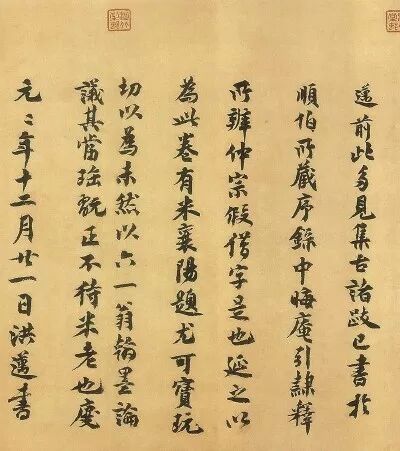 邁前此多見集古諸跋已書於
順伯所藏序錄中晦庵引隸釋
所辯仲宗假借字是也延之以
為此卷有米襄陽題尤可寶玩
切以為未然以六一翁翰墨論
議其當珍翫正不待米老也慶
元二年十二月廿一日洪邁書